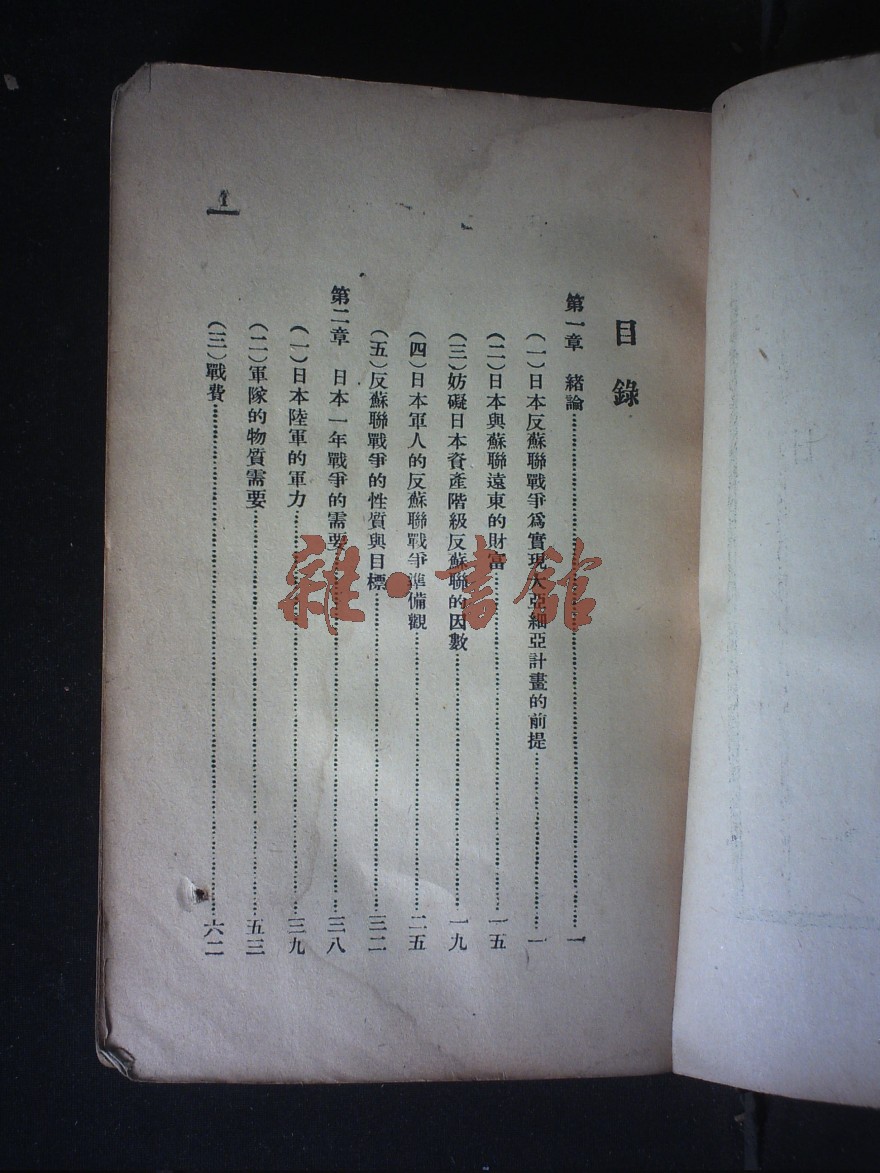 目錄
第一章 緒論……一
(一)日本反蘇聯戰爭爲實現大亞細亞計畫的前提……一
(二)日本與蘇聯遠東的財富……一五
(三)妨礙日本資產階級反蘇聯的因數……一九
(四)日本軍人的反蘇聯戰爭準備觀……二五
(五)反蘇聯戰爭的性質與目標……三二
第二章 日本一年戰爭的需要……三八
(一)日本陸軍的軍力……三九
(二)軍隊的物質需要……五三
(三)戰費……六二
1
雜·書館